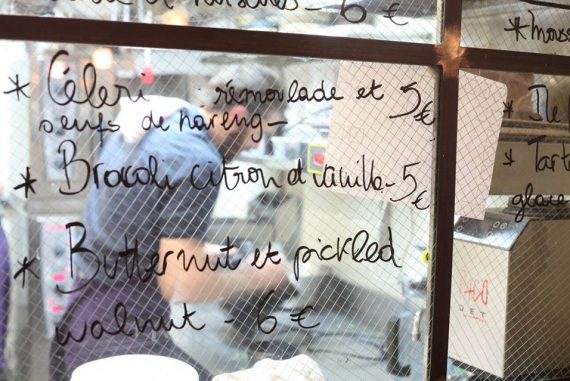 6 €
* Céleri rémoulade et 5€
oeufs de hareng -
* Brocoli citron et vanille - 5€
* Butternut et pickled
walnut - 6 €
* Mouss
* Tart
glace